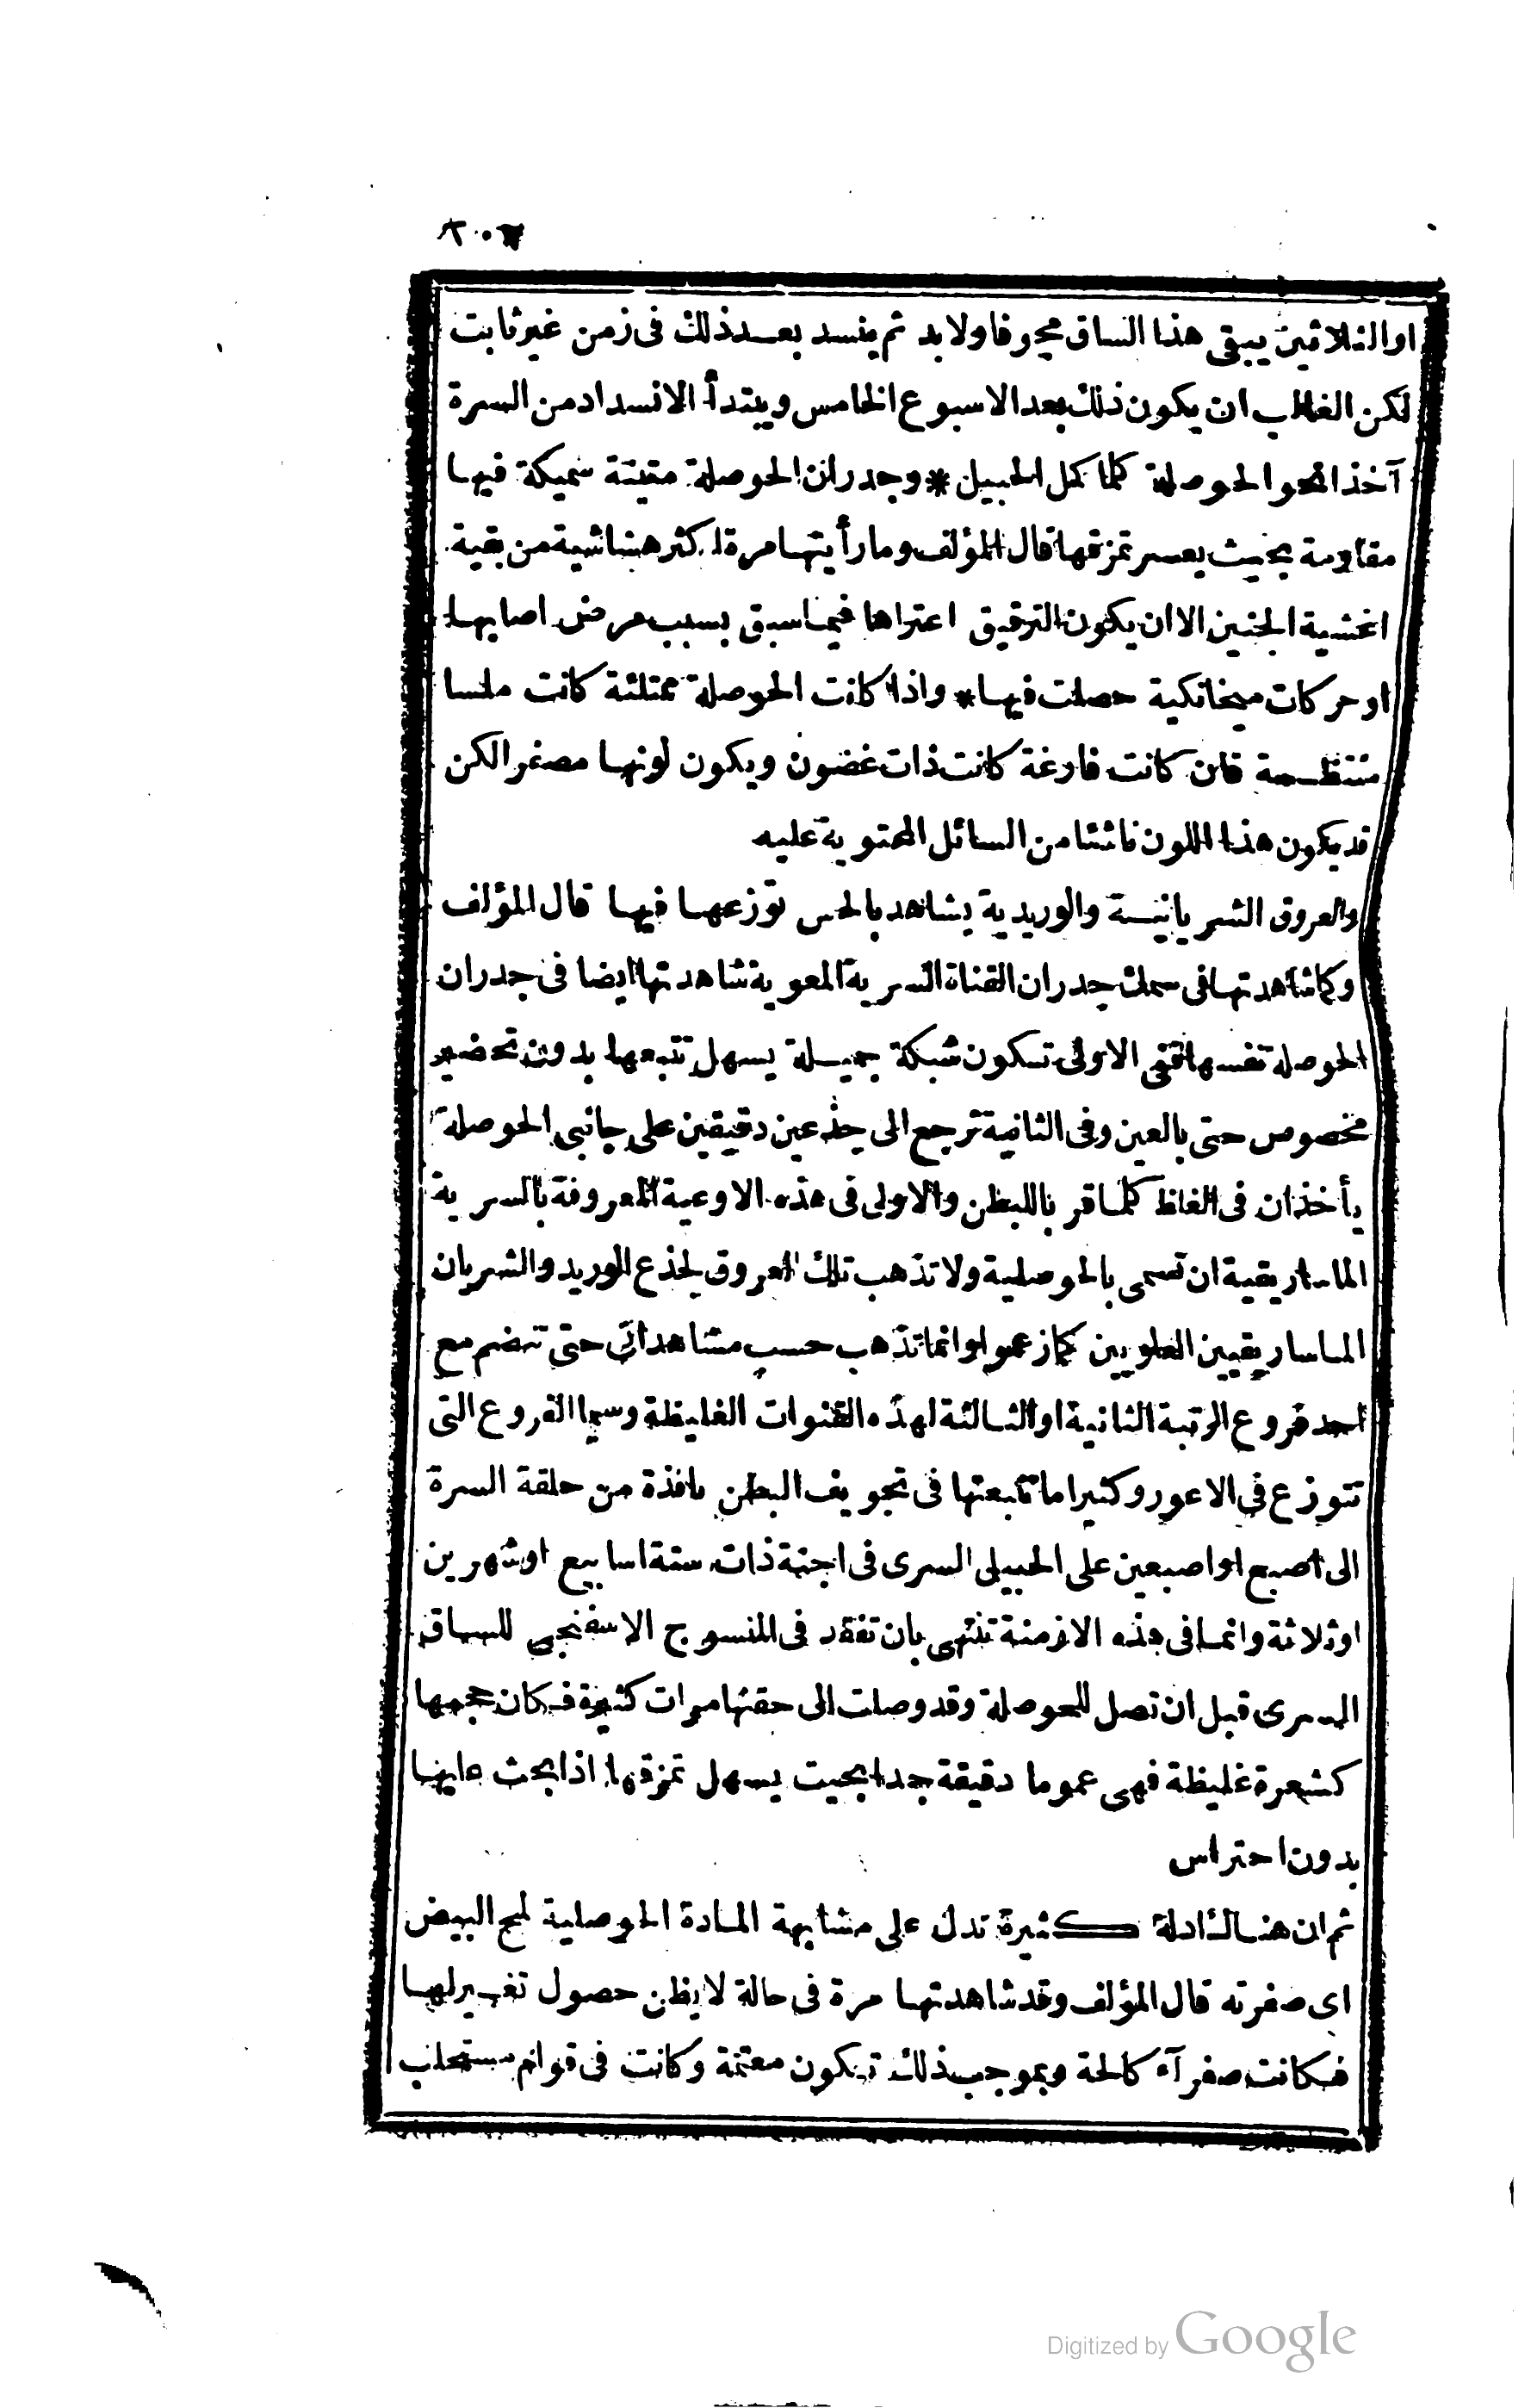 اوالثلاثين يبقى هذا الساق مجوفا ولابد ثم ينسد بعد ذلك فى زمن غير ثابت
لكن الغالب ان يكون ذلك بعد الاسبوع الخامس ويبتدأ الانسداد من السرة
آخذا نحو الحوصلة كلما كمل الحبيل * وجدران الحوصلة متينة سميكة فيها
مقاومة بحيث يعسر تمزقها قال المؤلف وما رأيتها مرة اكثر هشاشية من بقية
اغشية الجنين الا ان يكون الترقيق اعتراها فيما سبق بسبب مرض اصابها
او حركات ميخانكية حصلت فيها * واذا كانت الحوصلة ممتلئة كانت ملسا
منتظمة فان كانت فارغة كانت ذات غضون ويكون لونها مصفرا لكن
قد يكون هذا اللون ناشئا من السائل المحتوية عليه
والعروق الشريانية والوريدية يشاهد بالحس توزعها فيها قال المؤلف
وكما شاهدتها فى سمك جدران القناة السرية المعوية شاهدتها ايضا فى جدران
الحوصلة نفسها ففى الاولى تتكون شبكة جميلة يسهل تتبعها بدون تحضير
مخصوص حتى بالعين وفى الثانية ترجع الى جذعين دقيقين على جانبى الحوصلة
يأخذان فى الغلظ كلما قربا للبطن والاولى فى هذه الاوعية المعروفة بالسرية
الماساريقية ان تسمى بالحوصلية ولا تذهب تلك العروق لجذع الوريد والشريان
الماساريقيين العلويين كما زعموا وانما تذهب حسب مشاهداتى حتى تنضم مع
احد فروع الرتبة الثانية او الثالثة لهذه القنوات الغليظة وسيما الفروع التى
تتوزع فى الاعور وكثيرا ما تتبعتها فى تجويف البطن نافذة من حلقة السرة
الى اصبع او اصبعين على الحبيل السرى فى اجنة ذات ستة اسابيع او شهرين
او ثلاثة وانما فى هذه الازمنة تنتهى بان تفقد فى المنسوج الاسفنجى للساق
السرى قبل ان تصل للحوصلة وقد وصلت الى حقنها مرات كثيرة فكان حجمها
كشعرة غليظة فهى عموما دقيقة جدا بحيث يسهل تمزقها اذا بحث عليها
بدون احتراس
ثم ان هنالك ادلة كثيرة تدل على مشابهة المادة الحوصلية لمح البيض
اى صفرته قال المؤلف وقد شاهدتها مرة فى حالة لا يظن حصول تغير لها
فكانت صفرآء كالحة وبموجب ذلك تكون معتمة وكانت فى قوام مستحلب
Digitized by Google